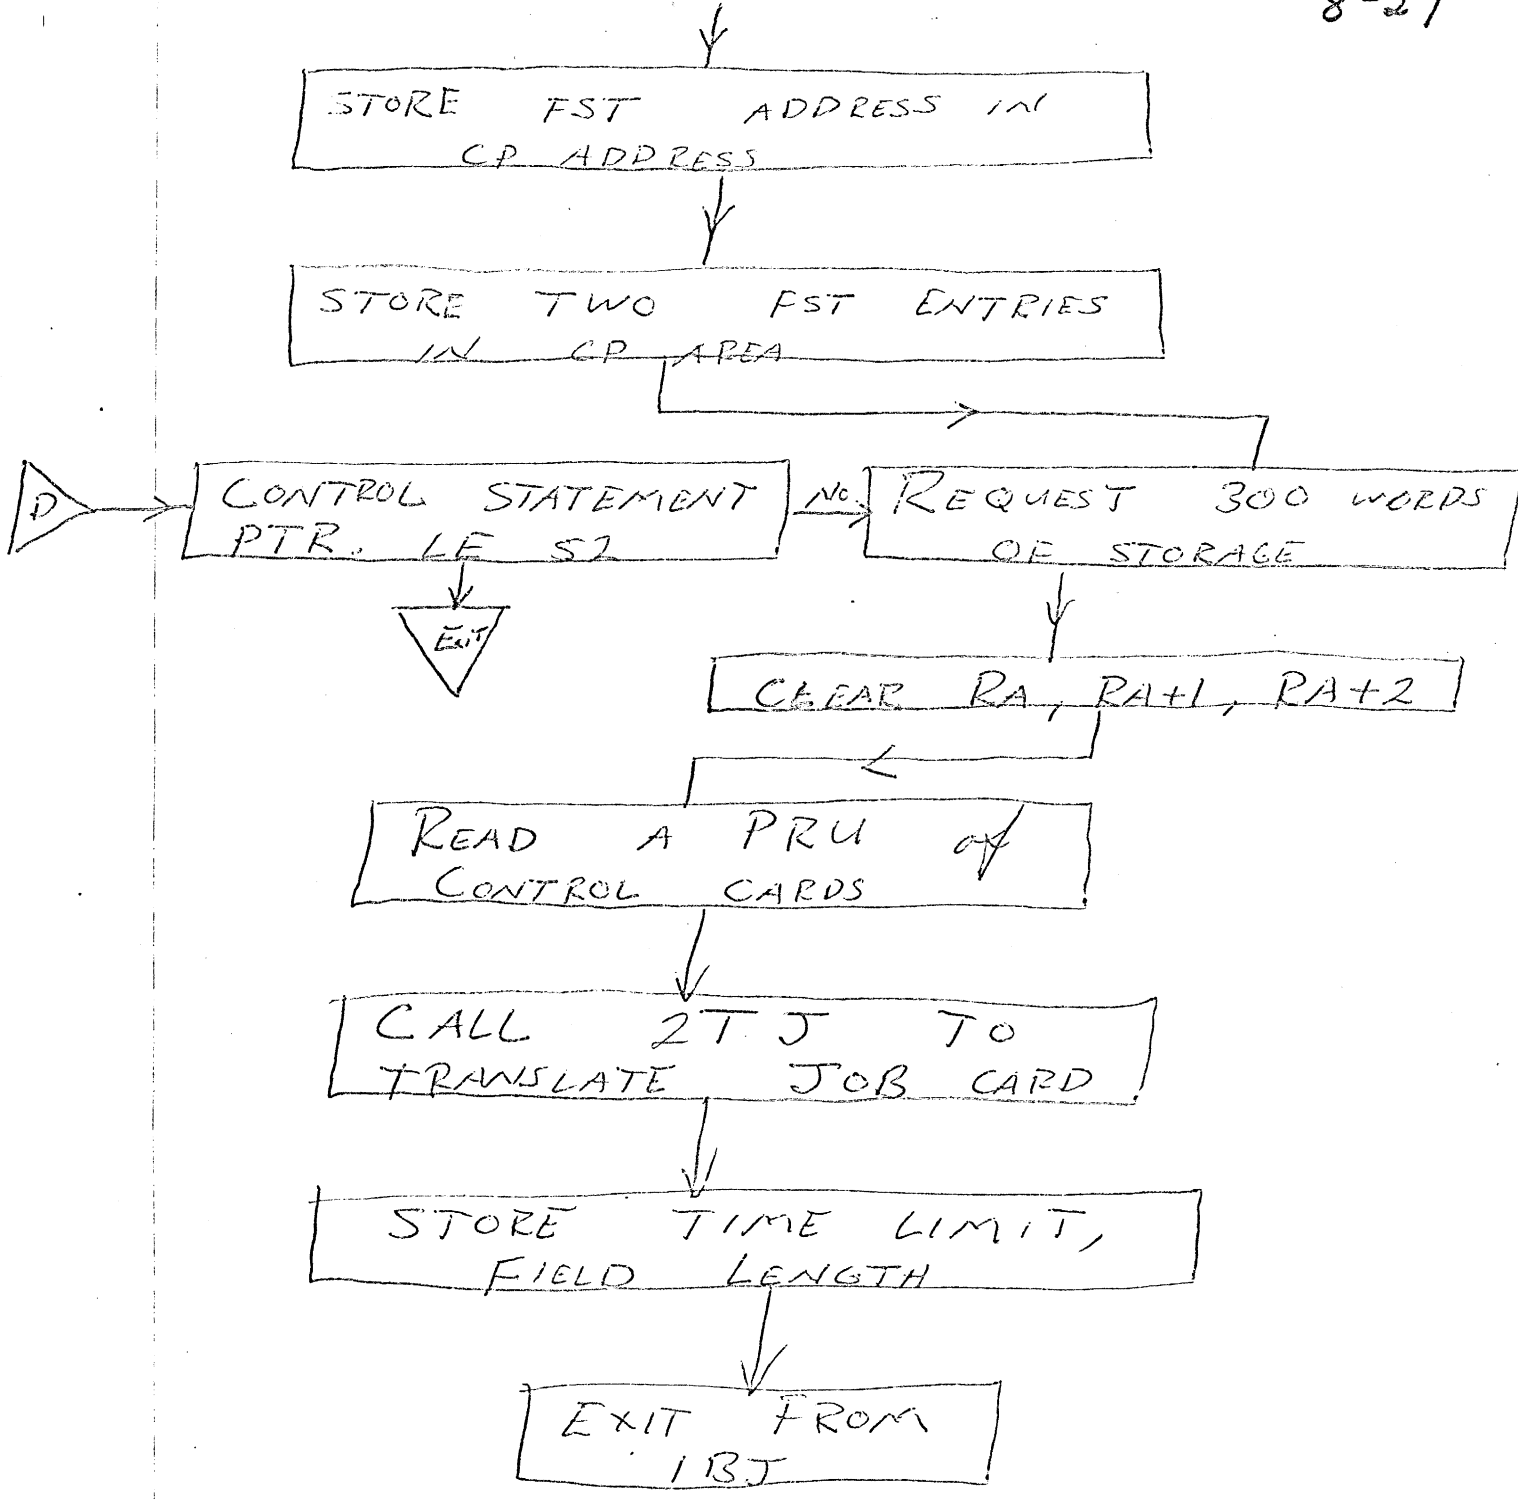 8-27
STORE FST ADDRESS IN
CP ADDRESS
STORE TWO FST ENTRIES
IN CP AREA
D
CONTROL STATEMENT
PTR. LE 52
NO.
REQUEST 300 WORDS
OF STORAGE
EXIT
CLEAR RA, RA+1, RA+2
READ A PRU of
CONTROL CARDS
CALL 2TJ TO
TRANSLATE JOB CARD
STORE TIME LIMIT,
FIELD LENGTH
EXIT FROM
1BJ